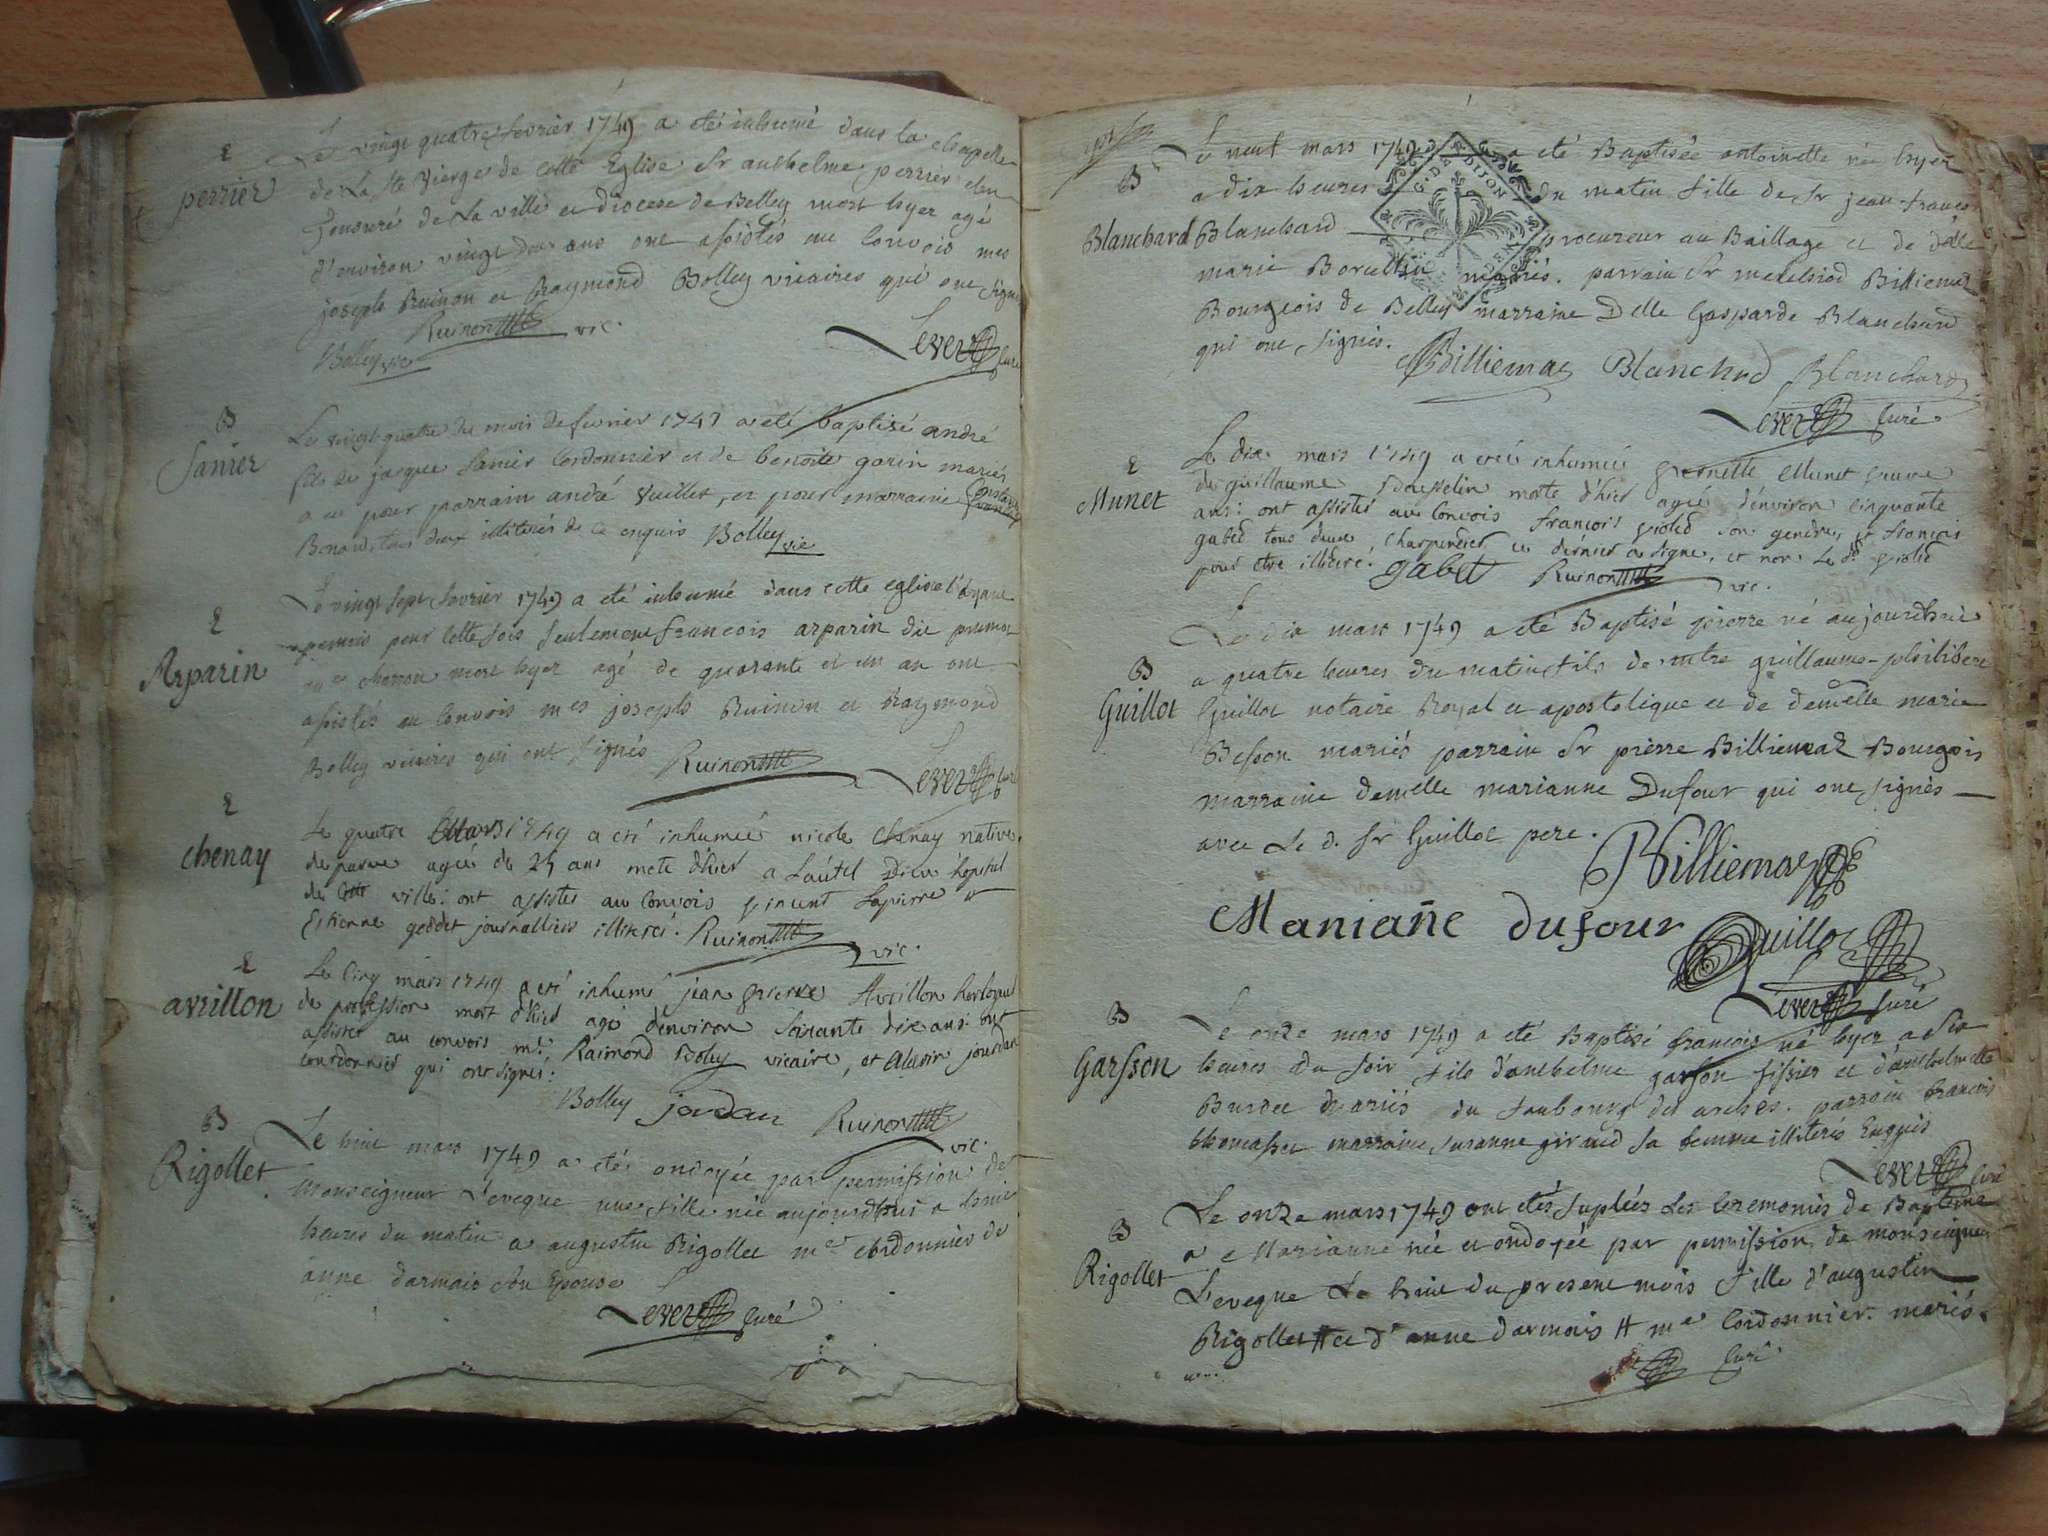 E
perrier
Le vingt quatre fevrier 1749 a eté inhumé dans la chapelle
de La Ste Vierge de cette Eglise Sr anthelme perrier clerc
Tonsurés de La ville et Diocese de Belley mort hyer agé
d'environ vingt deux ans ont assistés au Convois mes
joseph Ruinon et Raymond Bolley vicaires qui ont signé
Ruinon vic.
Bolley vic
Levet Curé
B
Sanier
Le vingt quatre du mois de fevrier 1749 a eté baptisé andré
fils de jacque Sanier Cordonnier et de benoite gorin mariés
a eu pour parrain andré Vuillet, et pour marraine
deux illiterés de ce enquis Bolley vic
E
Arparin
Le vingt sept fevrier 1749 a été inhumé dans cette eglise l'ayant
permis pour cette fois seulement francois arparin dit
mort hyer agé de quarante et un an ont
assistés au Convois mes joseph Ruinon et Raymond
Bolley vicaires qui ont signés Ruinon
Levet Curé
E
chenay
Le quatre Mars 1749 a eté inhumée nicole Chenay native
de agée de 25 ans morte d'hier a Lautel Dieu hopital
de Cette ville: ont assistes au Convois vincent Lapierre et
Estienne goddet journalliers illiteré. Ruinon
vic.
E
avrillon
Le Cinq mars 1749 a eté inhumé jean pierre Avrillon
de profession mort d'hier agé d'environ soixante dix ans: ont
assister au convois mre Raimond Boley vicaire, et jourdan
courdonnier qui ont signes:
Bolley jordan Ruinon
vic.
B
Rigollet
Le huit mars 1749 a eté ondoyée par permission de
Monseigneur L'eveque une fille née aujourdhui a huit
heures du matin a augustin Rigollet me Cordonnier de
anne darmais son Epouse
Levet Curé
B
Blanchard
Le neuf mars 1749 a eté Baptisée antoinette née hyer
a dix heures du matin fille de Sr jean francois
Blanchard procureur au Baillage et de delle
marie mariés. parrain Sr melchiod Billiemaz
Bourgeois de Belley marraine Delle Gasparde Blanchard
qui ont signés.
G. DE DIJON
Billiemaz Blanchard Blanchard
Levet Curé.
E
Munet
Le dix mars 1749 a eteé inhumée pernette Munet veuve
de guillaume morte d'hier agée d'environ cinquante
ans: ont assistés au Convois francois violed son gendre, et francois
gabet tous deux charpentier ce dernier a signe, et non Le dt violed
pour etre illiteré. gabet Ruinon
vic.
B
Guillot
Le dix mars 1749 a eté Baptisé pierre né aujourdhui
a quatre heures du matin fils de mtre guillaume-philibert
Guillot notaire Royal et apostolique et de demelle marie
Besson mariés parrain Sr pierre Billiemaz Bourgois
marraine demelle marianne Dufour qui ont signés
avec Le d. Sr Guillot pere.
Billiemaz
Maniañe dufour
Guillot
Levet Curé
B
Garsson
Le onze mars 1749 a eté Baptisé francois né hyer a six
heures du soir fils d'anthelme garson tissier et d'anthelmette
Burdet mariés du faubourg des arches. parrain francois
thomasset marraine Susanne giraud sa femme illiterés Enquis
Levet Curé
B
Rigollet
Le onze mars 1749 ont etés suplées Les Ceremonies de Bapteme
a Marianne née et ondoyée par permission de monseigneur
L'eveque Le huit du present mois fille d'augustin
Rigollet # et d'anne darmais # me Cordonnier. mariés.
Curé